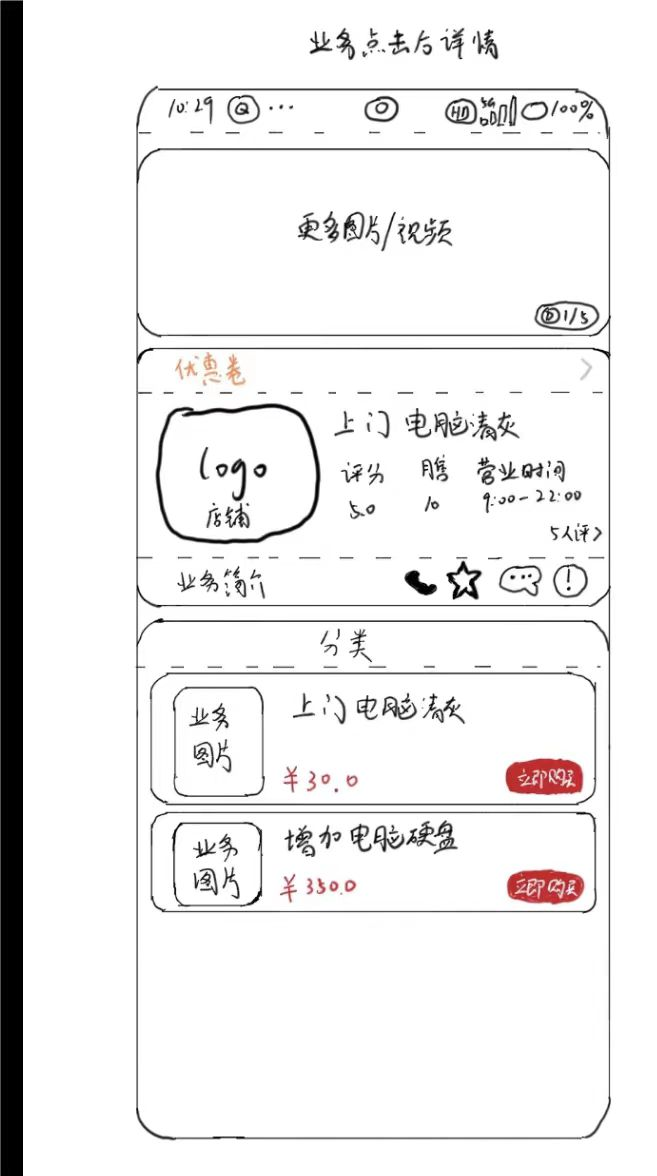 业务点击后详情
10:29 Q ... HD 5G 100%
更多图片/视频
1/5
优惠卷
上门电脑清灰
logo
店铺
评分 月售 营业时间
5.0 10 9:00-22:00
5人评>
业务简介
分类
业务
图片
上门电脑清灰
¥30.0
立即购买
业务
图片
增加电脑硬盘
¥350.0
立即购买